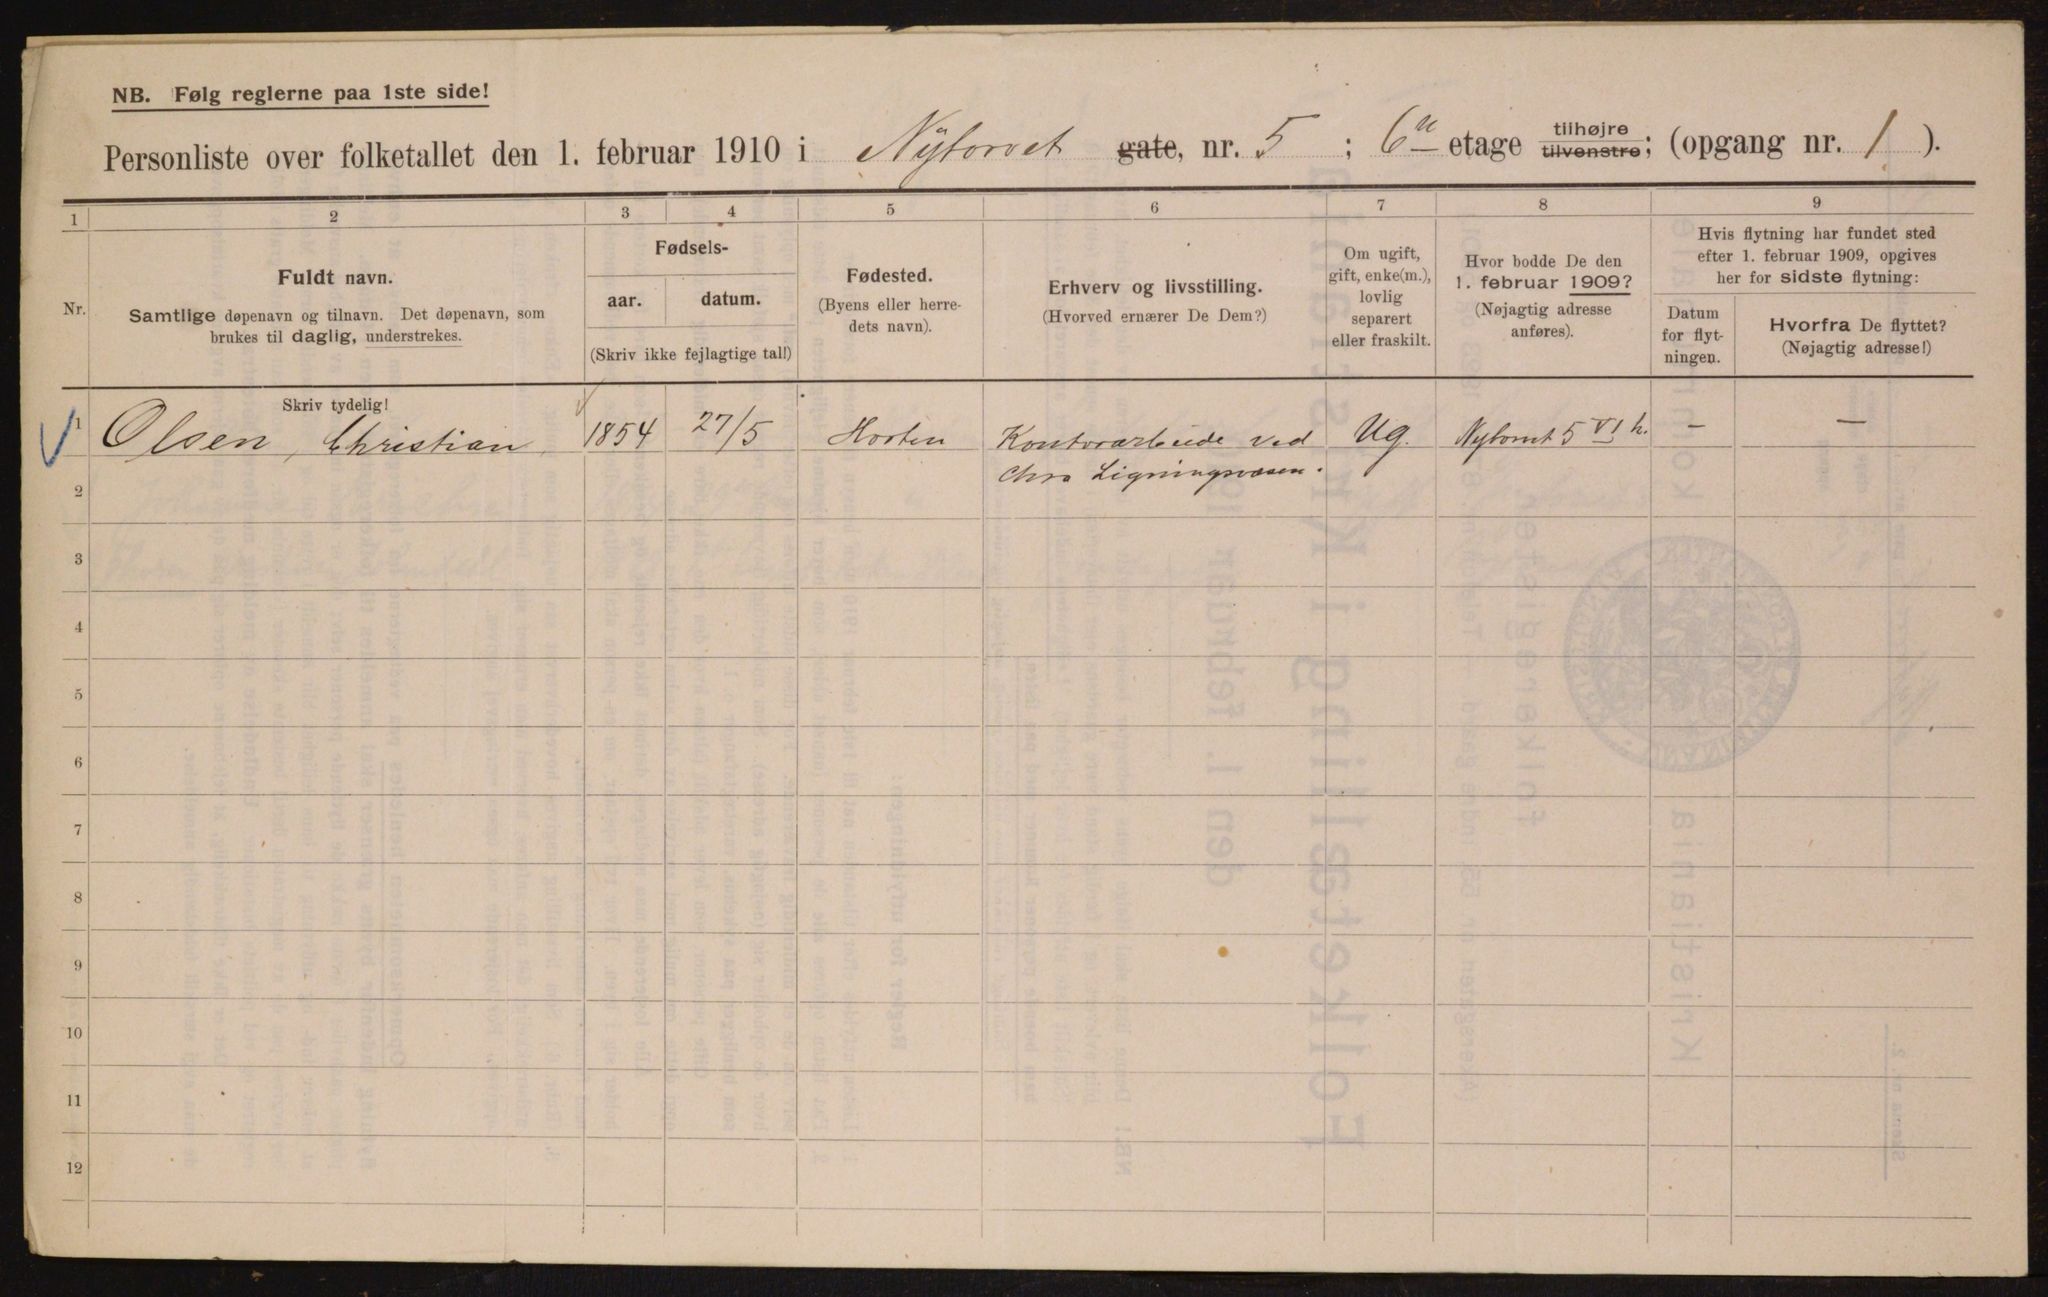 NB. Følg reglerne paa 1ste side!
Personliste over folketallet den 1. februar 1910 i Nytorvet gate, nr. 5 ; 6 etage tilhøjre tilvenstre; (opgang nr. 1 ).
1 2 3 4 5 6 7 8 9
Nr.
Fuldt navn.
Samtlige døpenavn og tilnavn. Det døpenavn, som
brukes til daglig, understrekes.
Fødsels-
aar. datum.
(Skriv ikke fejlagtige tal!)
Fødested.
(Byens eller herre-
dets navn).
Erhverv og livsstilling.
(Hvorved ernærer De Dem?)
Om ugift,
gift, enke(m.),
lovlig
separert
eller fraskilt.
Hvor bodde De den
1. februar 1909?
(Nøjagtig adresse
anføres).
Hvis flytning har fundet sted
efter 1. februar 1909, opgives
her for sidste flytning:
Datum
for flyt-
ningen.
Hvorfra De flyttet?
(Nøjagtig adresse!)
Skriv tydelig!
1 Olsen, Christian 1854 27/5 Horten Kontorarbeide ved Ug. Nytorvet 5 VI h. — —
Chra Ligningsvæsen.
2
3
4
5
6
7
8
9
10
11
12